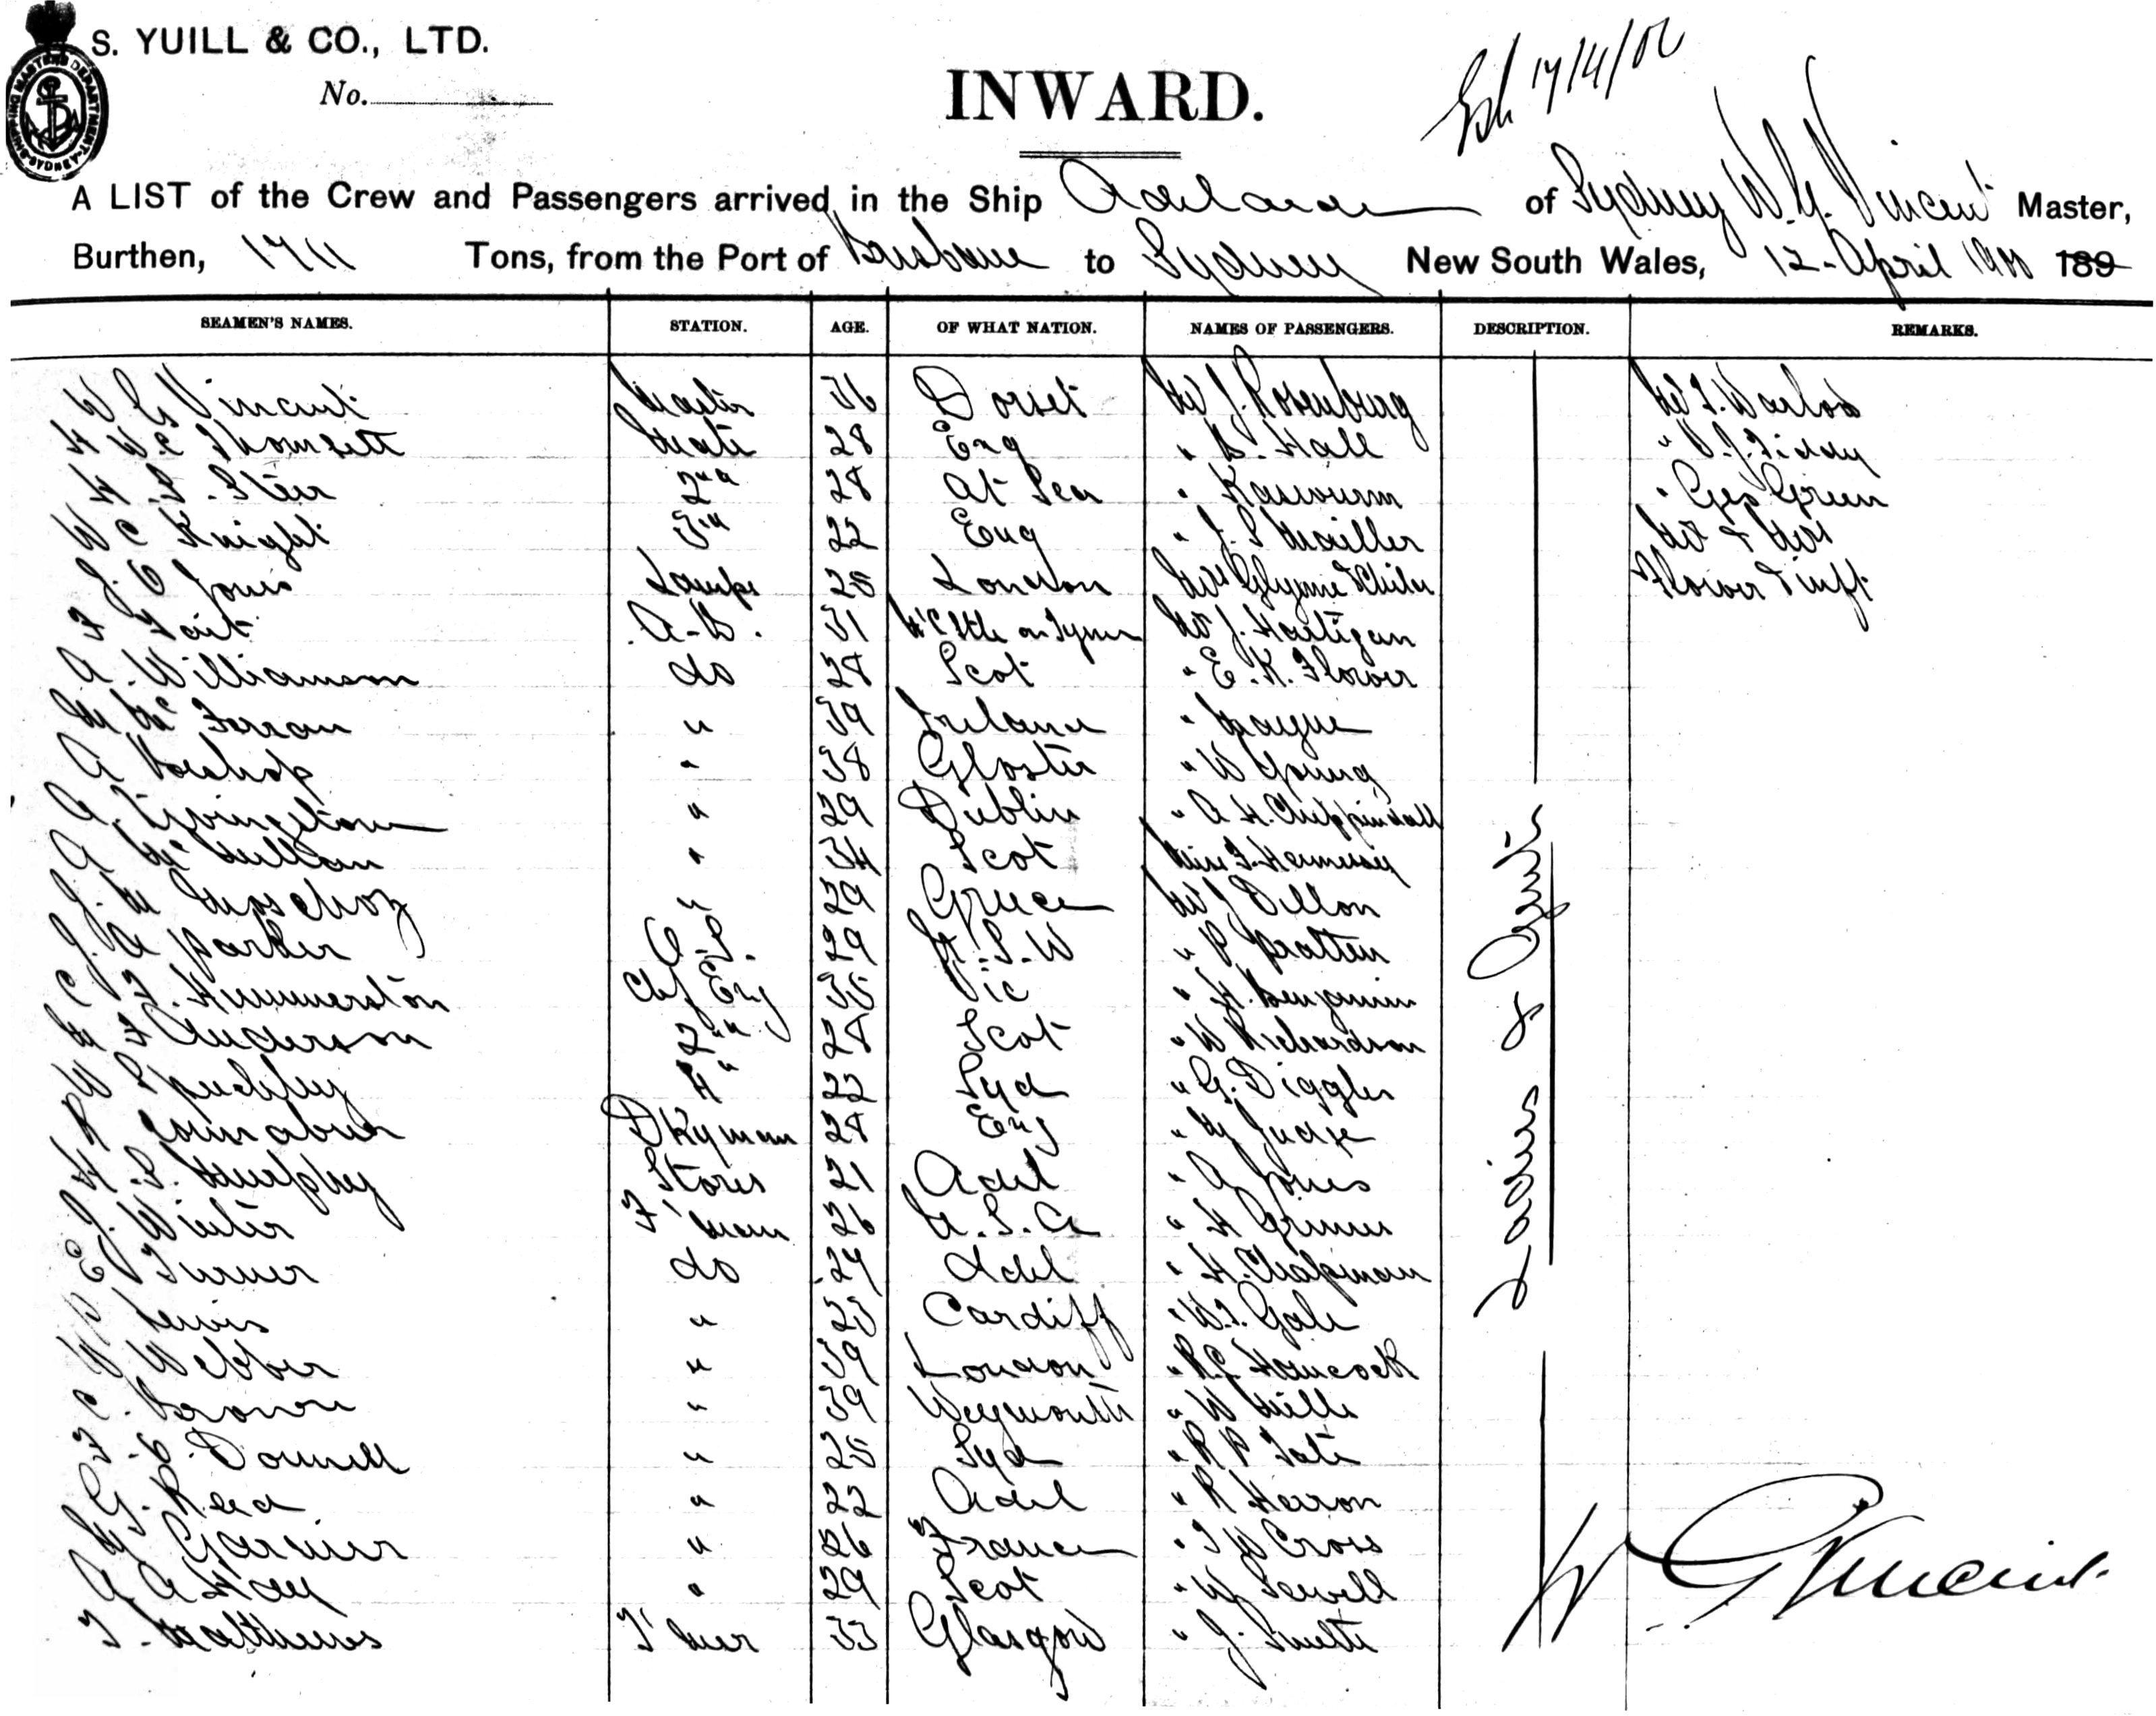 S. YUILL & CO., LTD.
No.
INWARD.
17/4/00
SHIPPING MASTERS DEPARTMENT SYDNEY
A LIST of the Crew and Passengers arrived in the Ship Adelaide of Sydney W. G. Vincent Master,
Burthen, 1711 Tons, from the Port of Brisbane to Sydney New South Wales, 12 April 1900 189
SEAMEN'S NAMES. STATION. AGE. OF WHAT NATION. NAMES OF PASSENGERS. DESCRIPTION. REMARKS.
W G Vincent Master 36 Dorset Mr J. Rosenburg Mr T. Warlow
H W C Thomsett Mate 28 Eng " B. Hall
H. S. Steer 2nd 28 At Sea " Kaswurm " Geo Green
W C Knight 3rd 22 Eng " J. S Mailler Mr & Mrs
J. O Jones Lamps 25 London Mrs Glynne & Child Flower & inft
F Tait A.B. 31 N'Cstle on Tyne Mr J. Hartigan
A. Williamson do 28 Scot " E. K. Flower
M McFerran " 39 Ireland " Mayne
A Bishop " 38 Gloster " W Young
A. Livingstone " 29 Dublin " A. H. Chippindall
A McMillan " 34 Scot Miss F. Hennessy
J. M " 29 Greece Mr J Dillon
J. A Parker O.S. 29 N.S.W " P. Pratten
C F. Hummerston Chf Eng 35 Vic " H. Benjamin
M F Anderson 2nd 28 Scot " W Richardson
W S 4th 22 Syd " G. Diggles
R Dkyman 28 Eng " M Judge
H. S. Murphy Stores 21 Adel " A Jones
J. Winter F'man 26 U.S.A " H Grimes
E V Turner do 29 Adel " H. Chapman
P Lewis " 23 Cardiff " W. J. Gale
W Webber " 39 London " R. C Hancock
C. Brown " 39 Weymouth " W Mills
F. C. Donnell " 25 Syd " R P Tate
G. Reed " 22 Adel " R Herron
M Garnier " 26 France " T W Cross
A A Hay " 29 Scot " W Sewell
T. Matthews T'mer 33 Glasgow " J. Smith
Ladies & Gents
W G Vincent